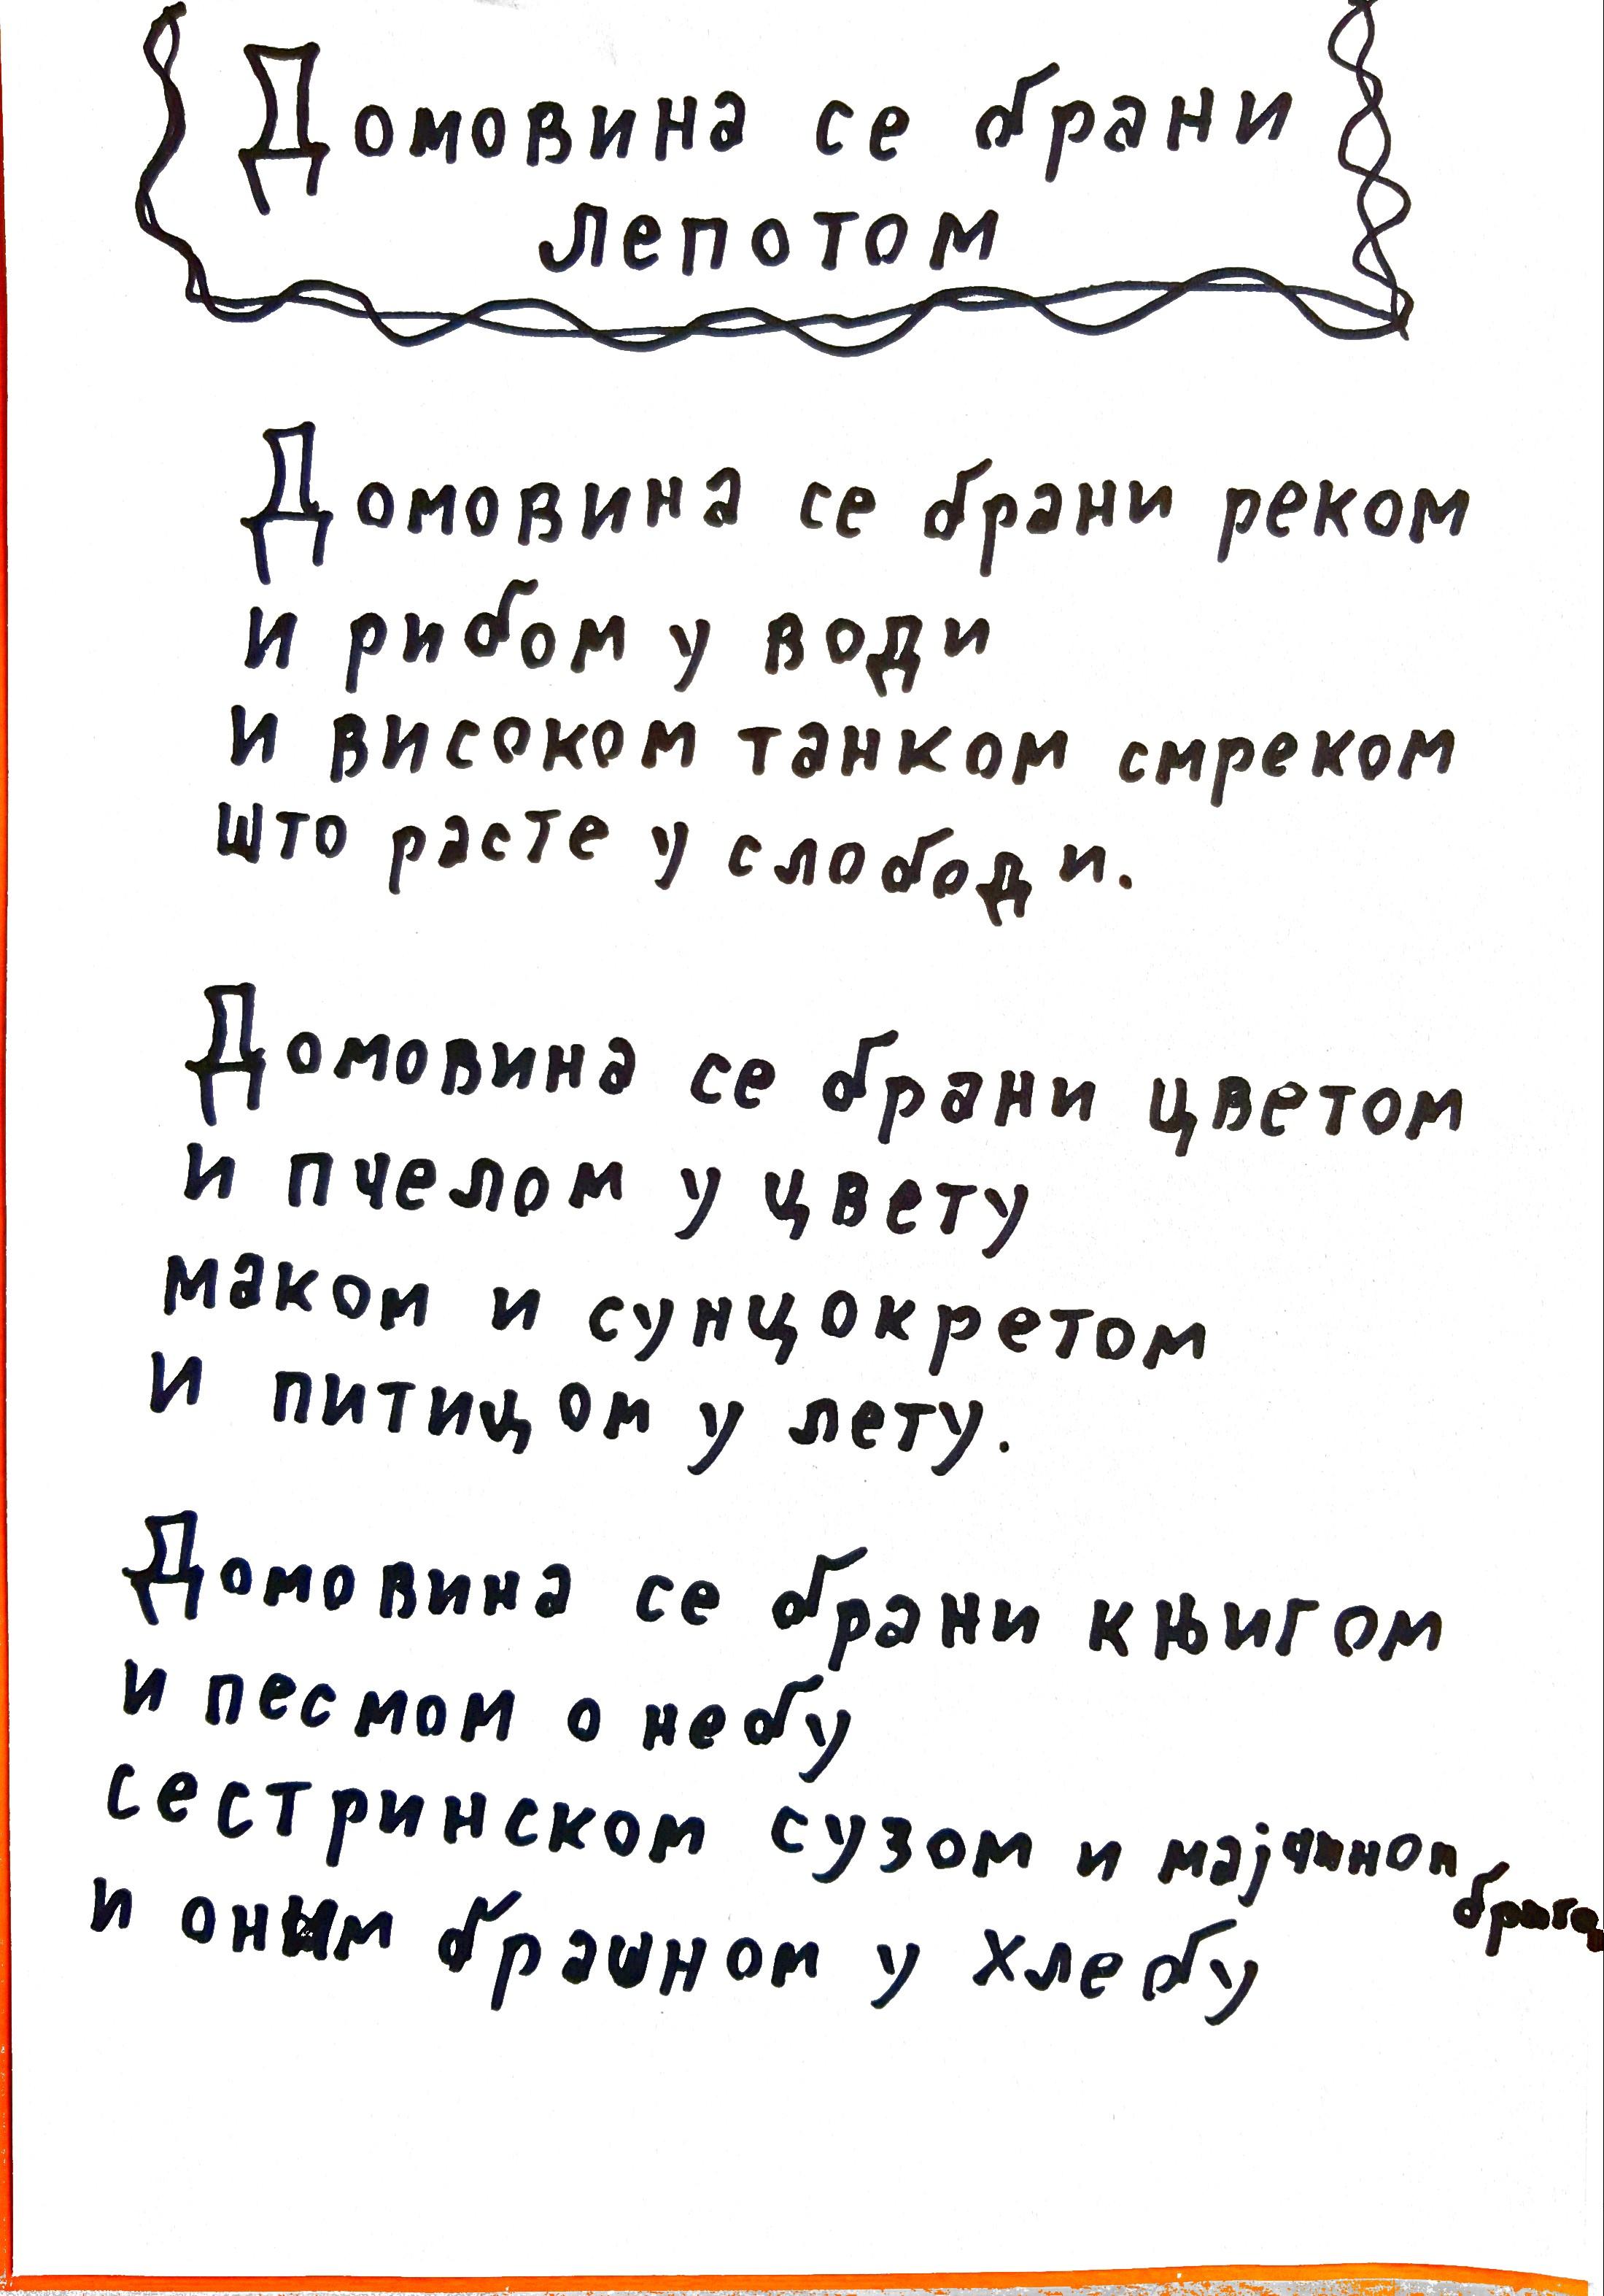 Домовина се брани
лепотом
Домовина се брани реком
и рибом у води
и високом танком смреком
што расте у слободи.
Домовина се брани цветом
и пчелом у цвету
маком и сунцокретом
и птицом у лету.
Домовина се брани књигом
и песмом о небу
сестринском сузом и мајчином
и оним брашном у хлебу